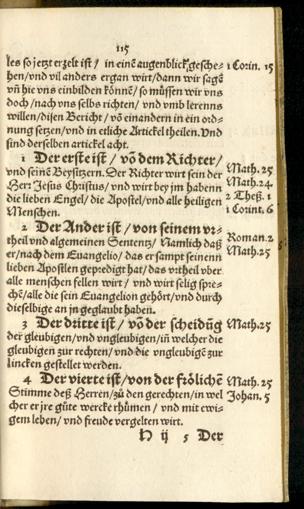 115
les so jetzt erzelt ist / in einē augenblick gesche= 1 Corin. 15
hen/vnd vil anders ergan wirt/dann wir sagē
vñ hie vns einbilden könnē/ so müssen wir vns
doch/nach vns selbs richten/ vnd vmb lerenns
willen/disen Bericht/ vō einandern in ein ord=
nung setzen/vnd in etliche Artickel theilen. Vnd
sind derselben artickel acht.
1 Der erste ist / vō dem Richter/
vnd seinē Beysitzern. Der Richter wirt sein der Math. 25
Herr Jesus Christus/ vnd wirt bey jm habenn Math. 24.
die lieben Engel/ die Apostel/vnd alle heiligen 2 Theß. 1
Menschen. 1 Corint. 6
2 Der Ander ist / von seinem vr=
theil vnd algemeinen Sententz/ Namlich daß Roman. 2
er/nach dem Euangelio/ das er sampt seinenn Math. 25
lieben Apostlen gepredigt hat/ das vrtheil vber
alle menschen fellen wirt / vnd wirt selig spre=
chē/alle die sein Euangelion gehört/vnd durch
dieselbige an jn geglaubt haben.
3 Der dritte ist / vō der scheidūg Math. 25
der gleubigen/vnd vngleubigen/iñ welcher die
gleubigen zur rechten/ vnd die vngleubigē zur
lincken gestellet werden.
4 Der vierte ist/von der frölichē Math. 25
Stimme deß Herren/zū den gerechten/in wel Johan. 5
cher er jre güte wercke rhümen / vnd mit ewi=
gem leben/ vnd freude vergelten wirt.
H ij 5 Der